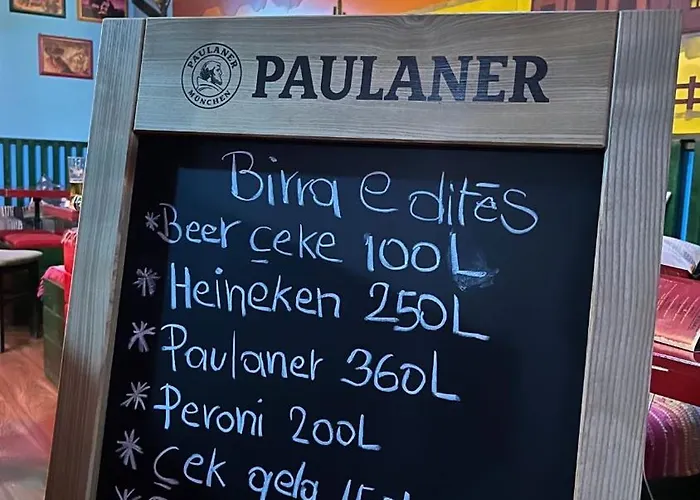 PAULANER
MÜNCHEN
PAULANER
Birra e ditës
*Beer çeke 100L
* Heineken 250L
* Paulaner 360L
* Peroni 200L
* Çek qela
*